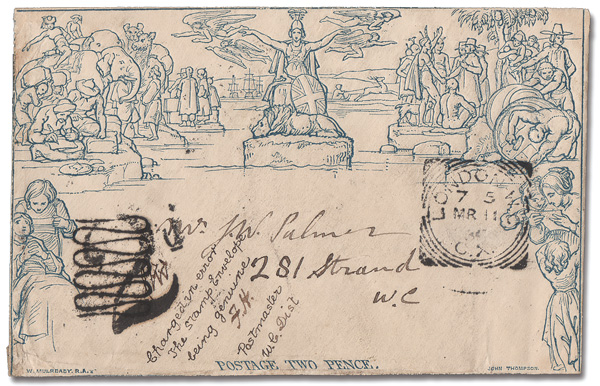 LONDON
7 54
MR 11
Mr. J.W. Palmer
281 Strand
W.C
Charged in error
The Stamp Envelope
being genuine
F.H.
Postmaster
W.C. Dist
POSTAGE TWO PENCE.
W. MULREADY. R.A.
JOHN THOMPSON.